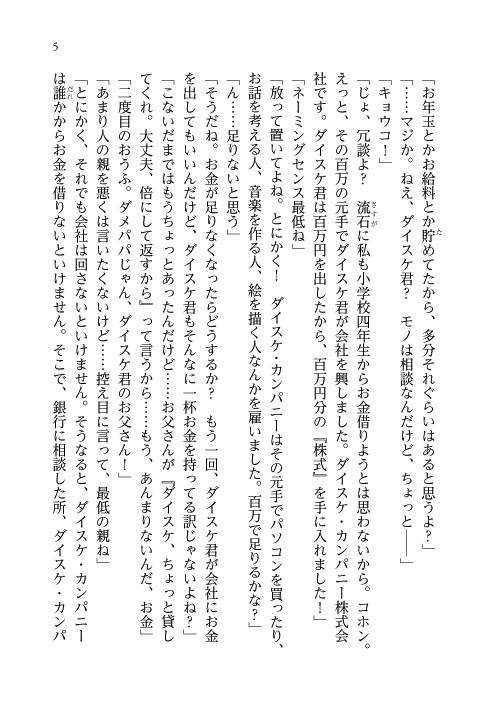 5
「お年玉とかお給料とか貯めてたから、多分それぐらいはあると思うよ?」
「……マジか。ねえ、ダイスケ君? モノは相談なんだけど、ちょっと――」
「キョウコ!」
「じょ、冗談よ? 流石に私も小学校四年生からお金借りようとは思わないから。コホン。
えっと、その百万の元手でダイスケ君が会社を興しました。ダイスケ・カンパニー株式会
社です。ダイスケ君は百万円を出したから、百万円分の『株式』を手に入れました!」
「ネーミングセンス最低ね」
「放って置いてよね。とにかく! ダイスケ・カンパニーはその元手でパソコンを買ったり、
お話を考える人、音楽を作る人、絵を描く人なんかを雇いました。百万で足りるかな?」
「ん……足りないと思う」
「そうだね。お金が足りなくなったらどうするか? もう一回、ダイスケ君が会社にお金
を出してもいいんだけど、ダイスケ君もそんなに一杯お金を持ってる訳じゃないよね?」
「こないだまではもうちょっとあったんだけど……お父さんが『ダイスケ、ちょっと貸し
てくれ。大丈夫、倍にして返すから』って言うから……もう、あんまりないんだ、お金」
「二度目のおうふ。ダメパパじゃん、ダイスケ君のお父さん!」
「あまり人の親を悪くは言いたくないけど……控え目に言って、最低の親ね」
「とにかく、それでも会社は回さないといけません。そうなると、ダイスケ・カンパニー
は誰かからお金を借りないといけません。そこで、銀行に相談した所、ダイスケ・カンパ